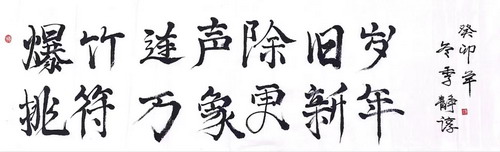 爆竹連声除旧岁
桃符万象更新年
癸卯年
冬季静